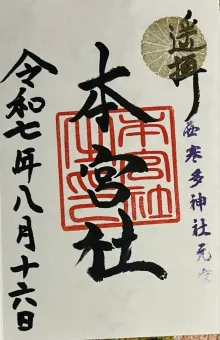 遥拝
西寒多神社元
本宮社
本宮社
之印
令和七年八月十六日